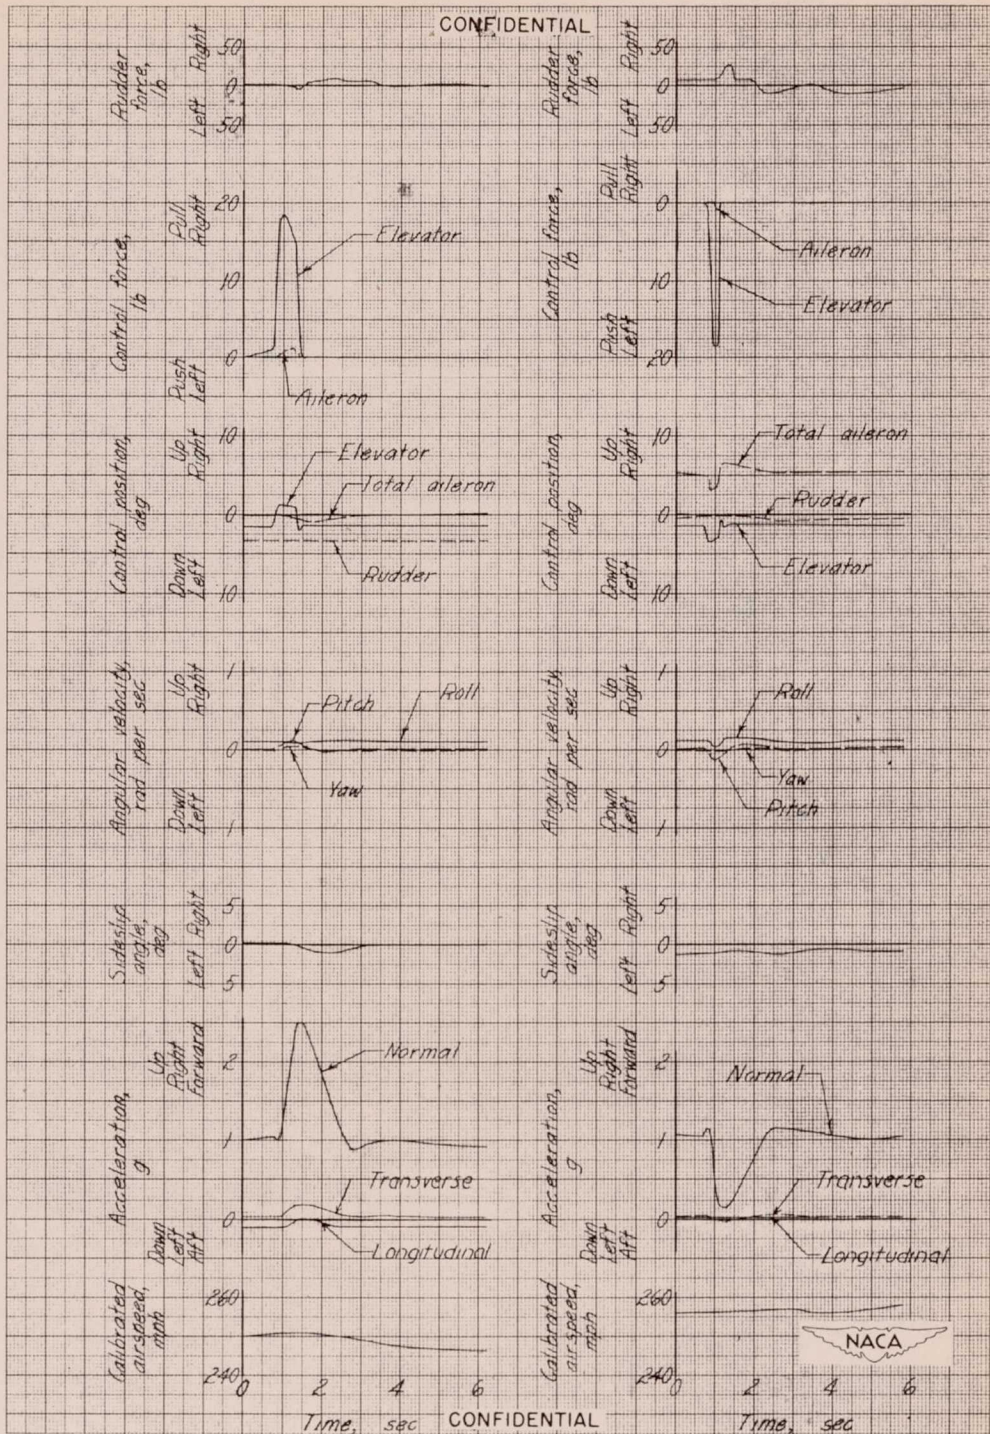 CONFIDENTIAL
Rudder force, lb
Left Right
50
0
50
Control force, lb
Push Left
Pull Right
20
10
0
Elevator
Aileron
Control position, deg
Down Left
Up Right
10
0
10
Elevator
Total aileron
Rudder
Angular velocity, rad per sec
Down Left
Up Right
1
0
1
Pitch
Roll
Yaw
Sideslip angle, deg
Left Right
5
0
5
Acceleration, g
Down Left Aft
Up Right Forward
2
1
0
Normal
Transverse
Longitudinal
Calibrated airspeed, mph
260
240
0 2 4 6
Time, sec
Rudder force, lb
Left Right
50
0
50
Control force, lb
Push Left
Pull Right
0
10
20
Aileron
Elevator
Control position, deg
Down Left
Up Right
10
0
10
Total aileron
Rudder
Elevator
Angular velocity, rad per sec
Down Left
Up Right
1
0
1
Roll
Yaw
Pitch
Sideslip angle, deg
Left Right
5
0
5
Acceleration, g
Down Left Aft
Up Right Forward
2
1
0
Normal
Transverse
Longitudinal
Calibrated airspeed, mph
260
240
NACA
0 2 4 6
Time, sec
CONFIDENTIAL